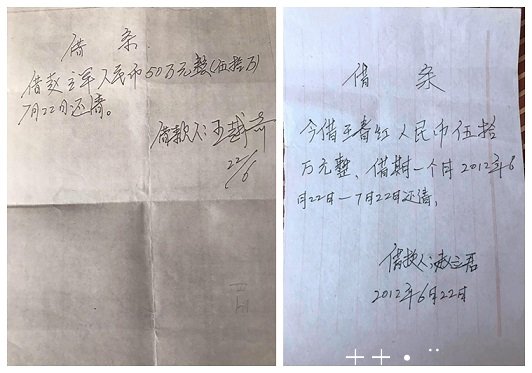 借条
借赵立军人民币50万元整(伍拾万)
7月22日还清。
借款人:王越奇
22/6
借条
今借王春红人民币伍拾
万元整、借期一个月2012年6
月22日—7月22日还清,
借款人:赵立君
2012年6月22日